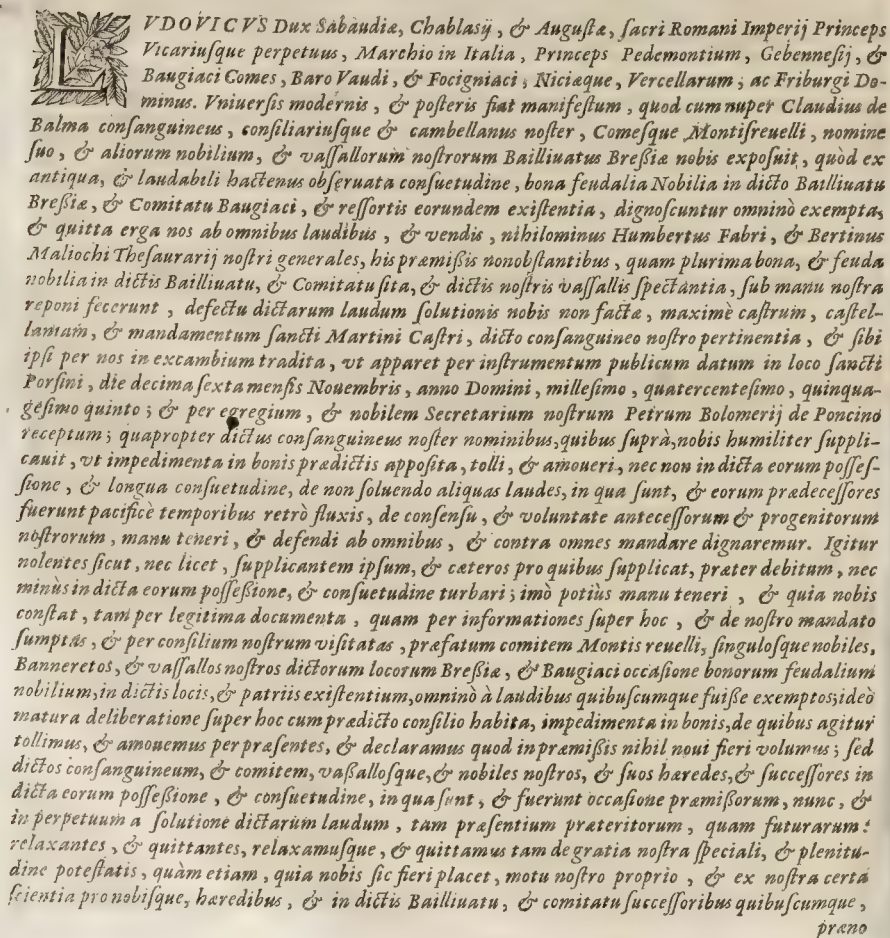 LVDOVICVS Dux Sabaudiæ, Chablasij, & Augustæ, ſacri Romani Imperij Princeps
Vicariuſque perpetuus, Marchio in Italia, Princeps Pedemontium, Gebenneſij, &
Baugiaci Comes, Baro Vaudi, & Focigniaci, Niciæque, Vercellarum, ac Friburgi Do-
minus. Vniuerſis modernis, & poſteris fiat manifeſtum, quod cum nuper Claudius de
Balma conſanguineus, conſiliariuſque & cambellanus noſter, Comeſque Montiſreuelli, nomine
ſuo, & aliorum nobilium, & vaſſallorum noſtrorum Bailliuatus Breßiæ nobis expoſuit, quòd ex
antiqua, & laudabili hactenus obſeruata conſuetudine, bona feudalia Nobilia in dicto Bailliuatu
Breßiæ, & Comitatu Baugiaci, & reſſortis eorundem exiſtentia, dignoſcuntur omninò exempta,
& quitta erga nos ab omnibus laudibus, & vendis, nihilominus Humbertus Fabri, & Bertinus
Maliochi Theſaurarij noſtri generales, his præmißis nonobſtantibus, quam plurima bona, & feuda
nobilia in dictis Bailliuatu, & Comitatu ſita, & dictis noſtris vaſſallis ſpectantia, ſub manu noſtra
reponi fecerunt, defectu dictarum laudum ſolutionis nobis non factæ, maximè caſtrum, caſtel-
laniam, & mandamentum ſancti Martini Caſtri, dicto conſanguineo noſtro pertinentia, & ſibi
ipſi per nos in excambium tradita, vt apparet per inſtrumentum publicum datum in loco ſancti
Porſini, die decima ſexta menſis Nouembris, anno Domini, milleſimo, quatercenteſimo, quinqua-
geſimo quinto; & per egregium, & nobilem Secretarium noſtrum Petrum Bolomerij de Poncino
receptum; quapropter dictus conſanguineus noſter nominibus, quibus ſuprà, nobis humiliter ſuppli-
cauit, vt impedimenta in bonis prædictis appoſita, tolli, & amoueri, nec non in dicta eorum poſſeſ-
ſione, & longua conſuetudine, de non ſoluendo aliquas laudes, in qua ſunt, & eorum prædeceſſores
fuerunt pacificè temporibus retrò fluxis, de conſenſu, & voluntate anteceſſorum & progenitorum
noſtrorum, manu teneri, & defendi ab omnibus, & contra omnes mandare dignaremur. Igitur
nolentes ſicut, nec licet, ſupplicantem ipſum, & cæteros pro quibus ſupplicat, præter debitum, nec
minùs in dicta eorum poſſeßione, & conſuetudine turbari; imò potiùs manu teneri, & quia nobis
conſtat, tam per legitima documenta, quam per informationes ſuper hoc, & de noſtro mandato
ſumptas, & per conſilium noſtrum viſitatas, præfatum comitem Montis reuelli, ſinguloſque nobiles,
Banneretos, & vaſſallos noſtros dictorum locorum Breßiæ, & Baugiaci occaſione bonorum feudalium
nobilium, in dictis locis, & patriis exiſtentium, omninò à laudibus quibuſcumque fuiße exemptos; ideò
matura deliberatione ſuper hoc cum prædicto conſilio habita, impedimenta in bonis, de quibus agitur
tollimus, & amouemus per præſentes, & declaramus quod in præmißis nihil noui fieri volumus; ſed
dictos conſanguineum, & comitem, vaßalloſque, & nobiles noſtros, & ſuos hæredes, & ſucceſſores in
dicta eorum poſſeßione, & conſuetudine, in qua ſunt, & fuerunt occaſione præmißorum, nunc, &
in perpetuum a ſolutione dictarum laudum, tam præſentium præteritorum, quam futurarum:
relaxantes, & quittantes, relaxamuſque, & quittamus tam de gratia noſtra ſpeciali, & plenitu-
dine poteſtatis, quàm etiam, quia nobis ſic fieri placet, motu noſtro proprio, & ex noſtra certa
ſcientia pro nobiſque, hæredibus, & in dictis Bailliuatu, & comitatu ſucceſſoribus quibuſcumque,
præno